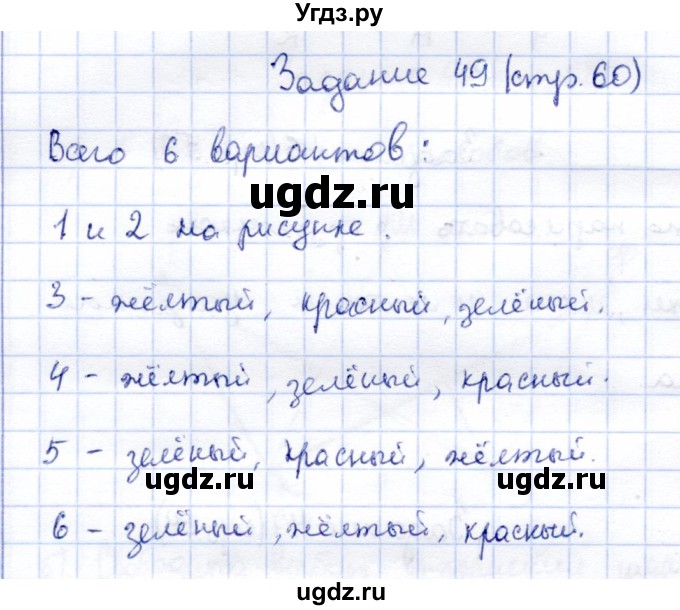 Угдз.ру
Задание 49 (стр. 60)
Всего 6 вариантов:
ugdz.ru
1 и 2 на рисунке.
3 - жёлтый, красный, зелёный.
4 - жёлтый, зелёный, красный.
ugdz.ru ugdz.ru
5 - зелёный, красный, жёлтый.
ugdz.ru ugdz.ru
6 - зелёный, жёлтый, красный.
ugdz.ru